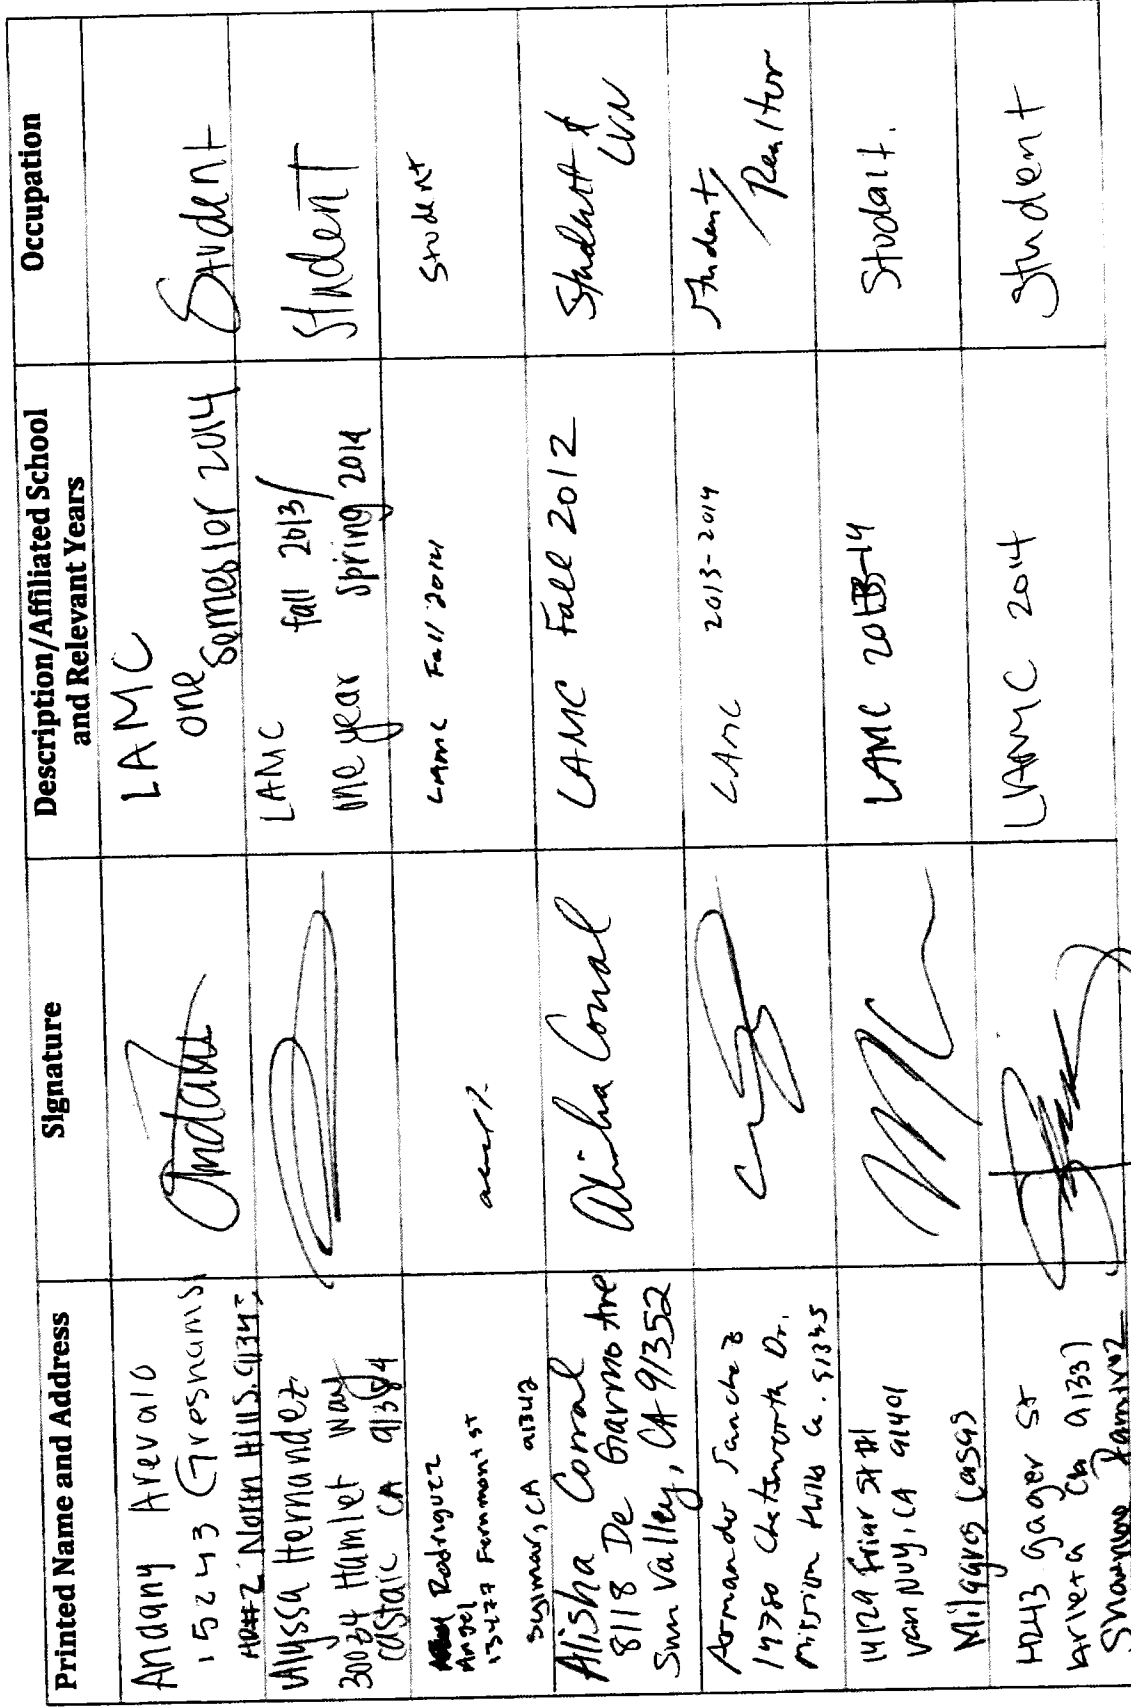 Printed Name and Address
Signature
Description/Affiliated School
and Relevant Years
Occupation
Andany Arevalo
15243 Gresham St
North Hills. 
LAMC
one
Semester 2014
Student
Alyssa Hernandez
30034 Hamlet way
castaic CA 91384
LAMC fall 2013/
one year spring 2014
Student
Rodriguez
Angel
13477 Fernmont st
Sylmar, CA 91342
LAMC Fall 2014
Student
Alisha Corral
8118 De Garmo Ave
Sun Valley, CA 91352
Alisha Corral
LAMC Fall 2012
Student &
LVN
Armando Sanchez
14780 Chatsworth Dr.
Mission Hills Ca. 91345
LAMC 2013-2014
Student/
Realtor
14129 Friar St #1
Van Nuys, CA 91401
Milagros Casas
LAMC 2013-14
Student.
Gager St
Arleta CA 91331
Ramirez
LAMC 2014
Student